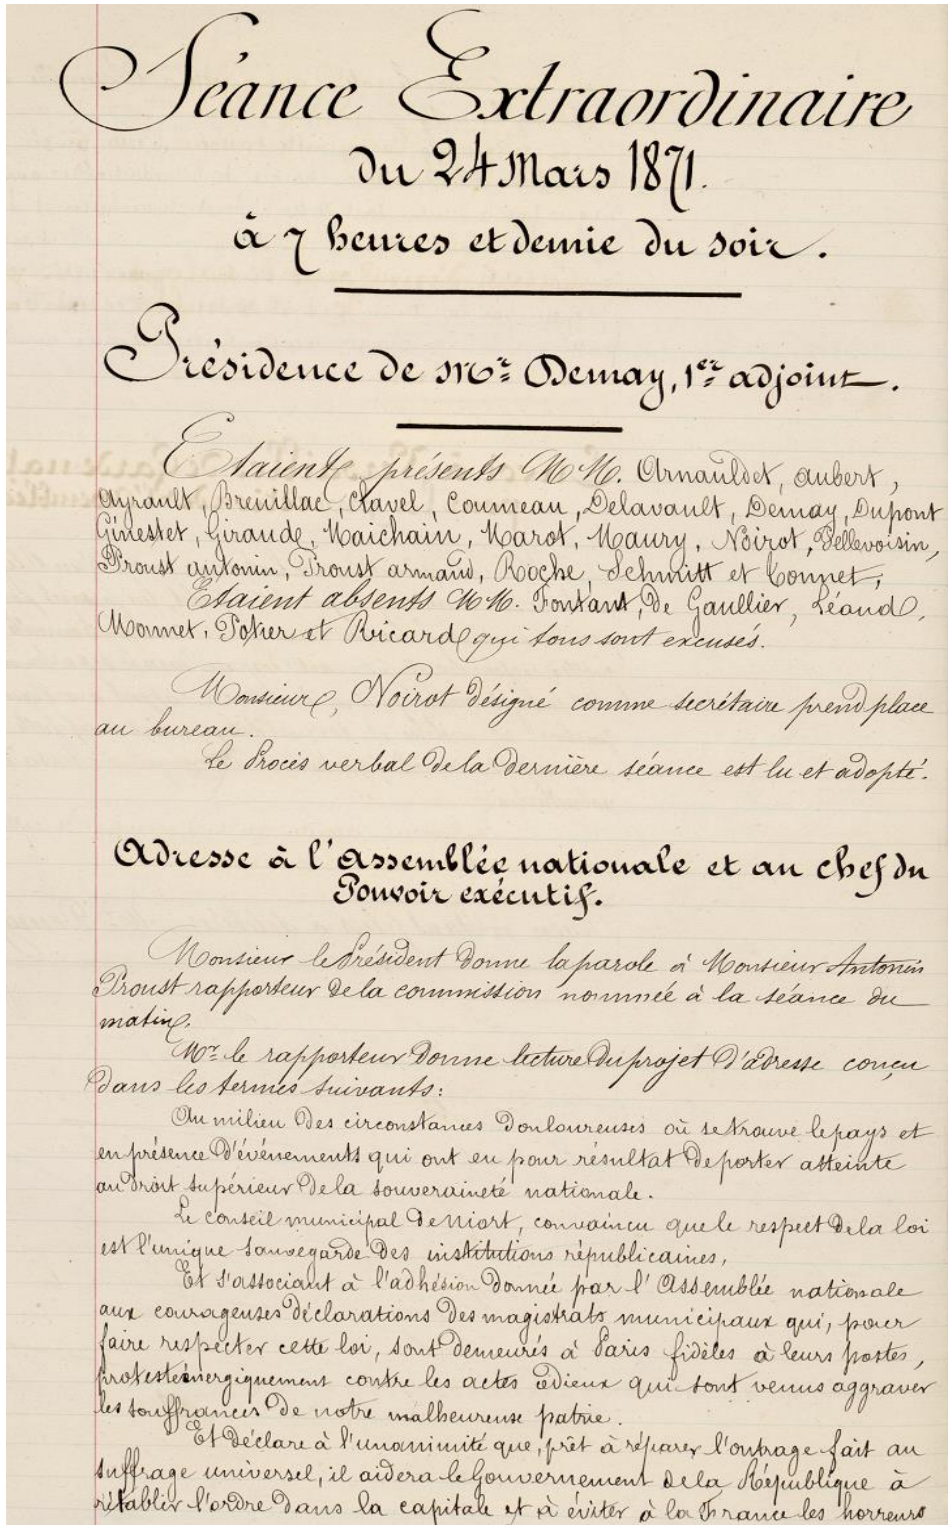 Séance Extraordinaire
du 24 Mars 1871.
à 7 heures et demie du soir.
Présidence de Mr. Demay, 1er adjoint.
Etaient présents MM. Arnauldet, Aubert,
Ayrault, Breuillac, Clavel, Coumeau, Delavault, Demay, Dupont
Ginestet, Giraude, Maichain, Marot, Maury, Noirot, Pellevoisin,
Proust antonin, Proust armand, Roche, Schmitt et Connet,
Etaient absents MM. Fontant, de Gaullier, Léaud,
Monnet, Potier et Ricard qui tous sont excusés.
Monsieur, Noirot désigné comme secrétaire prend place
au bureau.
Le Procès verbal de la dernière séance est lu et adopté.
Adresse à l'assemblée nationale et au chef du
Pouvoir exécutif.
Monsieur le Président donne la parole à Monsieur Antonin
Proust rapporteur de la commission nommée à la séance du
matin.
Mr. le rapporteur donne lecture du projet d'adresse conçu
dans les termes suivants :
Au milieu des circonstances douloureuses où se trouve le pays et
en présence d'événements qui ont eu pour résultat de porter atteinte
au droit supérieur de la souveraineté nationale.
Le conseil municipal de Niort, convaincu que le respect de la loi
est l'unique sauvegarde des institutions républicaines,
Et s'associant à l'adhésion donnée par l'Assemblée nationale
aux courageuses déclarations des magistrats municipaux qui, pour
faire respecter cette loi, sont demeurés à Paris fidèles à leurs postes,
proteste énergiquement contre les actes odieux qui sont venus aggraver
les souffrances de notre malheureuse patrie.
Et déclare à l'unanimité que, prêt à réparer l'outrage fait au
suffrage universel, il aidera le Gouvernement de la République à
rétablir l'ordre dans la capitale et à éviter à la France les horreurs